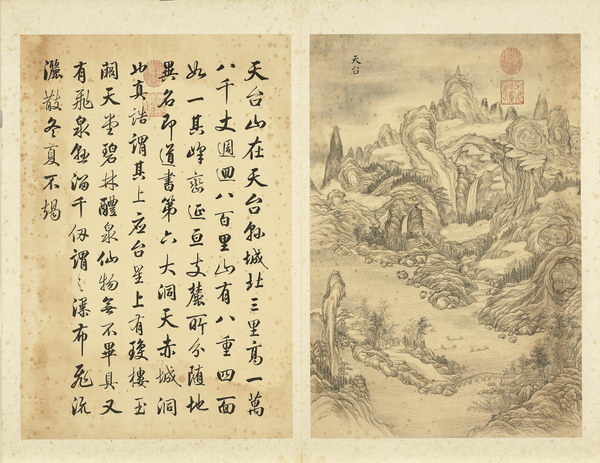 天台山在天台縣城北三里高一萬
八千丈週迴八百里山有八重四面
如一其峰巒延亘支麓所分隨地
異名即道書第六大洞天赤城洞
也真誥謂其上應台星上有瓊樓玉
闕天堂碧林醴泉仙物無不畢具又
有飛泉懸溜千仞謂之瀑布飛流
灑散冬夏不竭
天台